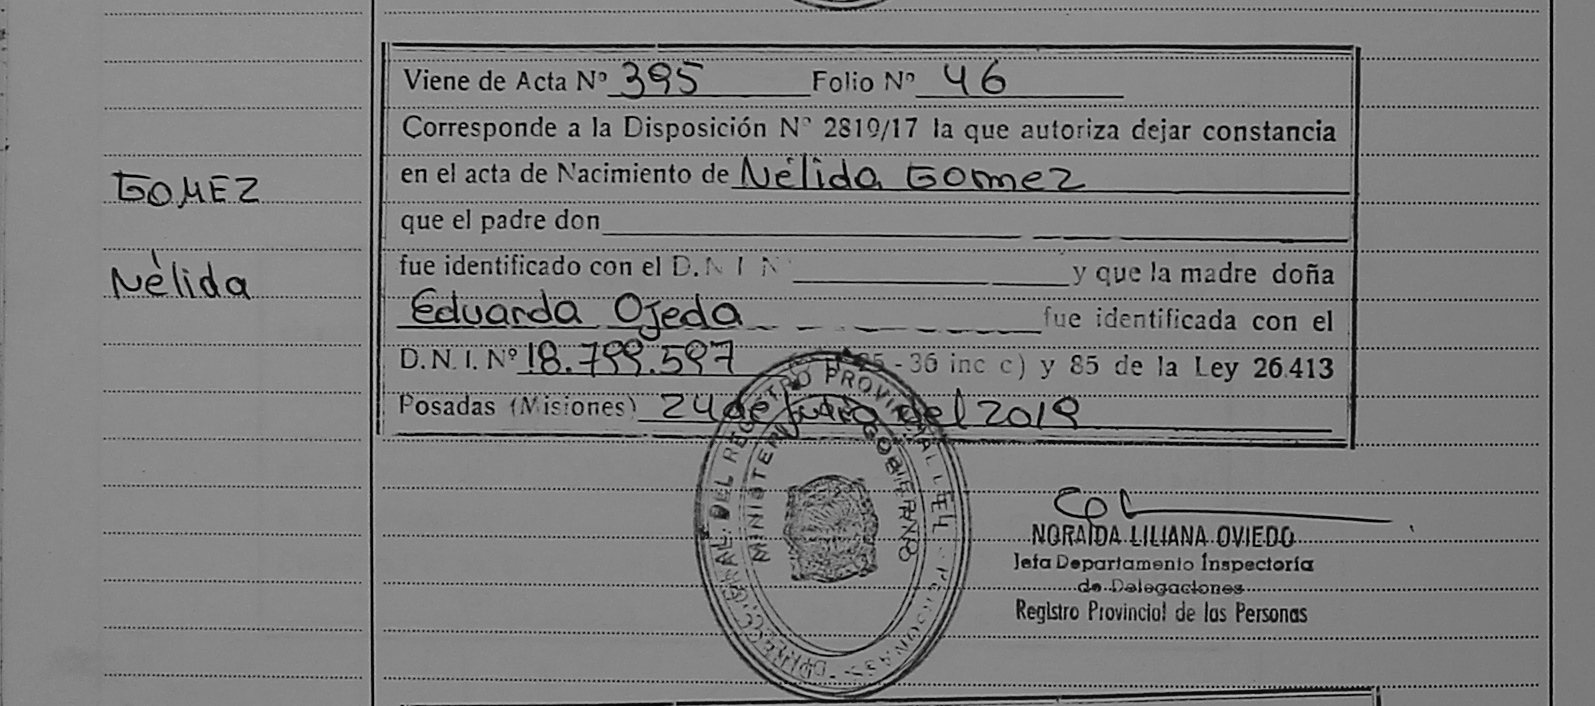 GOMEZ
Nélida
Viene de Acta Nº 395 Folio Nº 46
Corresponde a la Disposición Nº 2819/17 la que autoriza dejar constancia
en el acta de Nacimiento de Nélida Gomez
que el padre don
fue identificado con el D.N I N y que la madre doña
Eduarda Ojeda fue identificada con el
D.N.I. Nº 18.799.597 - 36 inc c) y 85 de la Ley 26.413
Posadas (Misiones) 24 de del 2019
REGISTRO PROVINCIAL DE L PERSONAS
MINISTERI GOBIERNO
NORAIDA LILIANA OVIEDO
Jefa Departamento Inspectoría
de Delegaciones
Registro Provincial de las Personas